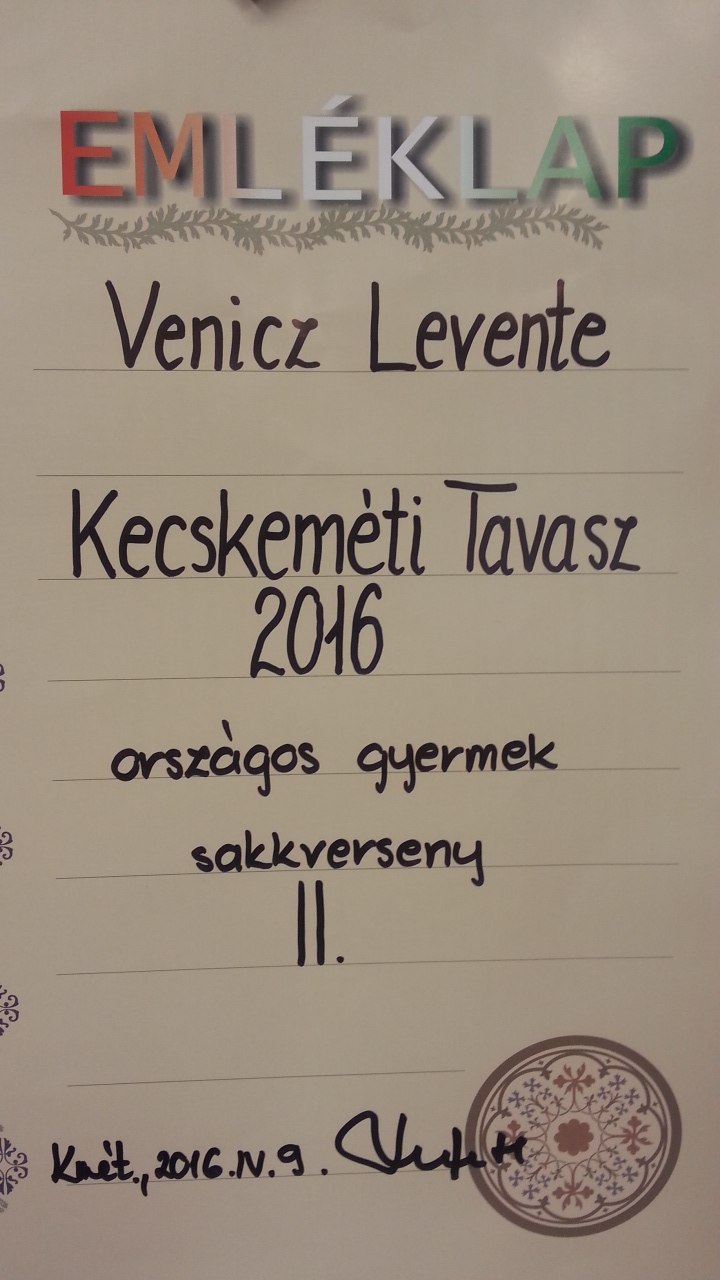 EMLÉKLAP
Venicz Levente
Kecskeméti Tavasz
2016
országos gyermek
sakkverseny
II.
Kmét., 2016.IV.9.